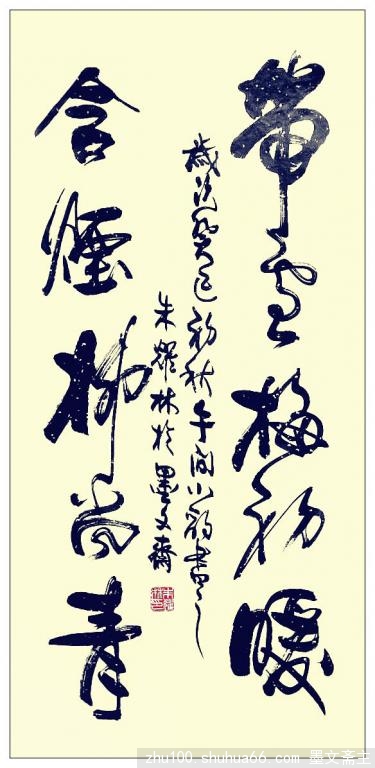 带雪梅初暖
含煙柳尚青
歲次癸巳初秋午间小韵書之
朱耀林於墨文齋
zhu100.shuhua66.com 墨文斋主